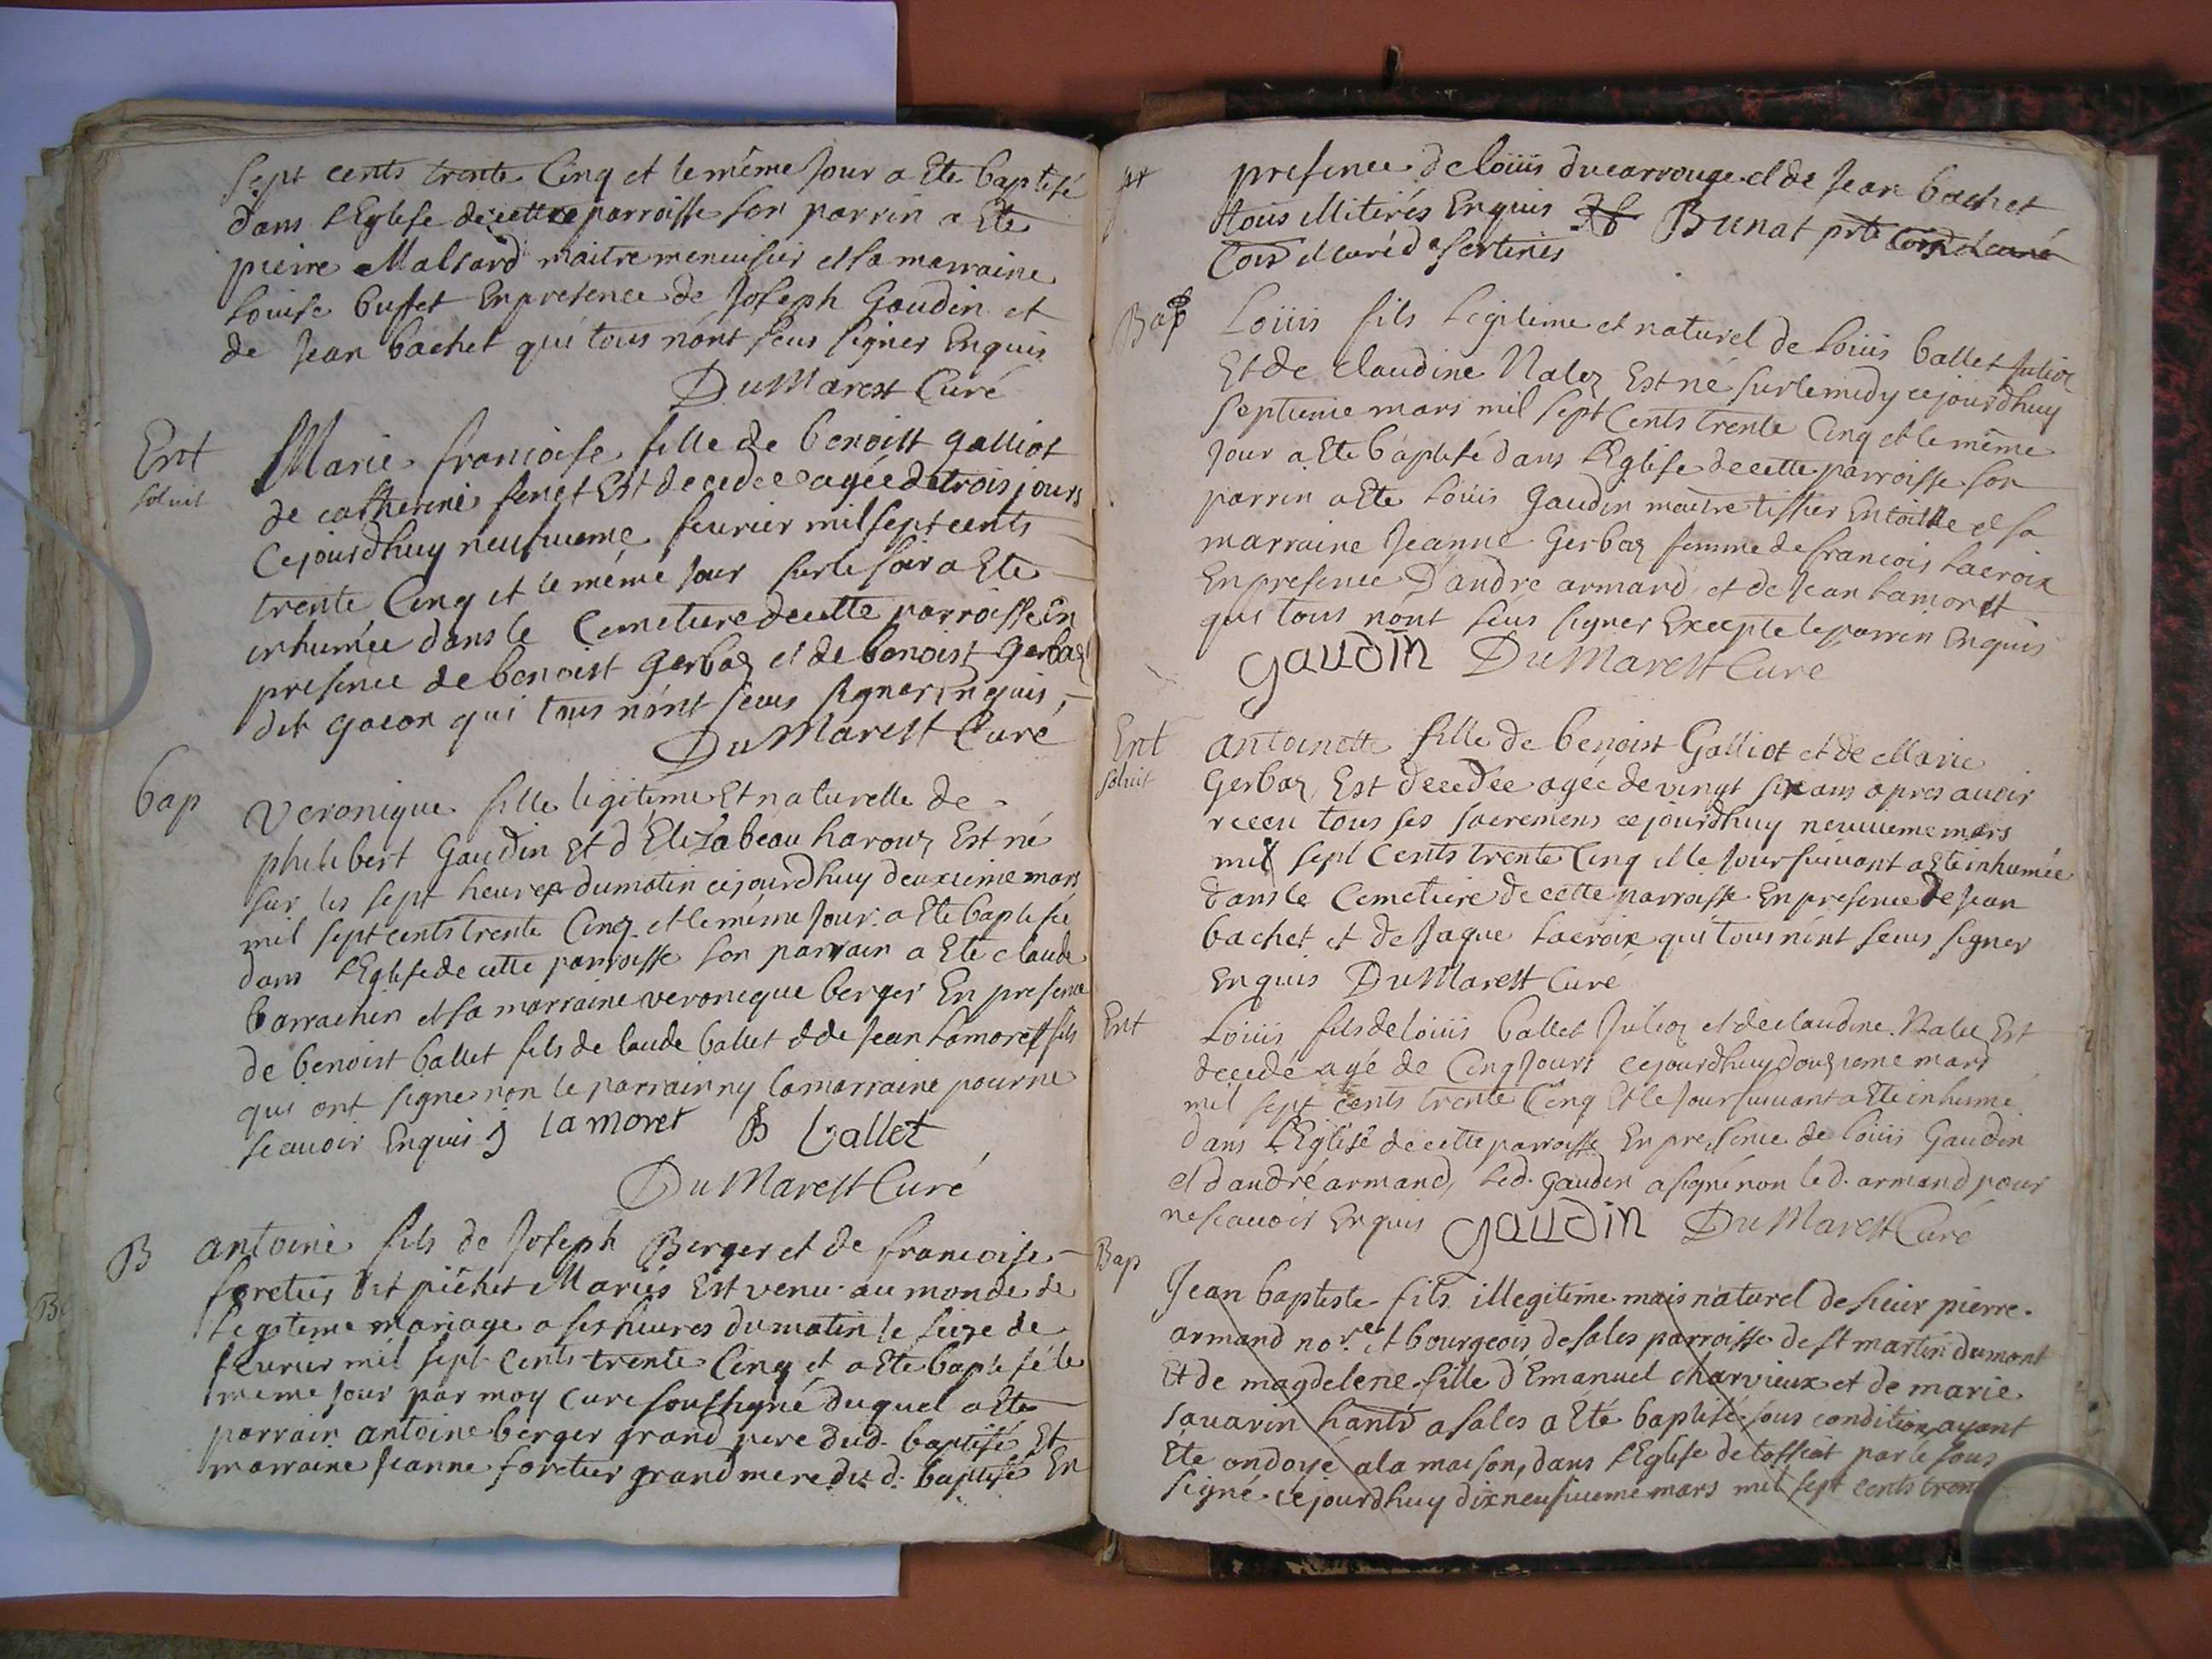 sept cents trente Cinq et le même Jour a Ete baptisé
dans l'Eglise de cette parroisse son parrin a Ete
pierre Malsard maitre menuisier et sa marraine
Louise buffet En presence de Joseph Gaudin et
de Jean bachet qui tous n'ont seus signer Enquis
DuMarest Curé
Ent
soluit
Marie francoise fille de benoist galliot
de catherine fenet Est decedee agée de trois jours
Cejourdhuy neufuieme feurier mil sept cents
trente Cinq et le même Jour sur le soir a Ete
inhumée dans le Cemetiere de cette parroisse En
presence de benoist Gerbaz et de benoist gerbaz
dit gacon qui tous n'ont seus signer inquis,
DuMarest Curé
bap
Veronique fille legitime Et naturelle de
philibert Gaudin Et d'Elizabeau harouz Est né
sur les sept heures du matin cejourdhuy deuxieme mars
mil sept cents trente Cinq et le même Jour a Ete baptisée
dans l'Eglise de cette parroisse son parrain a Ete claude
barrachin et sa marraine veronique berger En presence
de benoist ballet fils de laude ballet & de Jean Lamorest fils
qui ont signe non le parrain ny la marraine pour ne
scauoir Enquis J la moret B ballet
DuMarest Curé
B
antoine fils de Joseph Berger et de francoise
foretier dit pichet Mariés Est venu au monde de
Legitime mariage a six heures du matin le seize de
feurier mil sept cents trente Cinq et a Ete baptisé le
meme Jour par moy Curé soussigné duquel a Ete
parrain antoine berger grand pere dud. baptisé Et
marraine Jeanne foretier grand mere dud. baptisé En
presence de loüis ducarrouge et de Jean bachet
tous illitirés Enquis Bunat prte Cord et curé
Cord et curé de sertines
Bap
Loüis fils Legitime et naturel de Loüis ballet Julioz
Et de claudine Nalez Est né sur le midy cejourdhuy
septieme mars mil sept Cents trente Cinq et le même
Jour a Ete baptisé dans l'Eglise de cette parroisse son
parrin a Ete Loüis Gaudin maitre tissier En toille et sa
marraine Jeanne Gerbaz femme de francois Lacroix
En presence D'andre armand et de Jean Lamorest
qui tous n'ont seus signer Excepte le parrin Enquis
gaudin DuMarest Curé
Ent
soluit
antoinette fille de benoist Galliot et de Marie
Gerbaz Est decedée agée de vingt six ans apres auoir
receu tous ses sacremens cejourdhuy neuuieme mars
mil sept Cents trente Cinq et le Jour suiuant a Ete inhumée
dans le Cemetiere de cette parroisse En presence de Jean
bachet et de Jaque Lacroix qui tous n'ont seus signer
Enquis DuMarest Curé
Ent
Loüis fils de loüis ballet Julioz et de claudine Nalez Est
decedé agé de Cinq Jours cejourdhuy douzieme mars
mil sept cents trente Cinq Et le Jour suiuant a Ete inhumé
dans l'Eglise de cette parroisse En presence de loüis Gaudin
et d'andré armand, led. gaudin a signé non led. armand pour
ne scauoir Enquis gaudin DuMarest Curé
Bap
Jean baptiste fils illegitime mais naturel de sieur pierre
armand nore. et bourgeois de sales parroisse de st martin dumont
Et de magdelene fille d'Emanuel charvieux et de marie
sauarin hantz a sales a Eté baptisé sous condition ayant
Ete ondoyé a la maison, dans l'Eglise de tossiat par le sous
signé cejourdhuy dixneufuieme mars mil sept cents tren